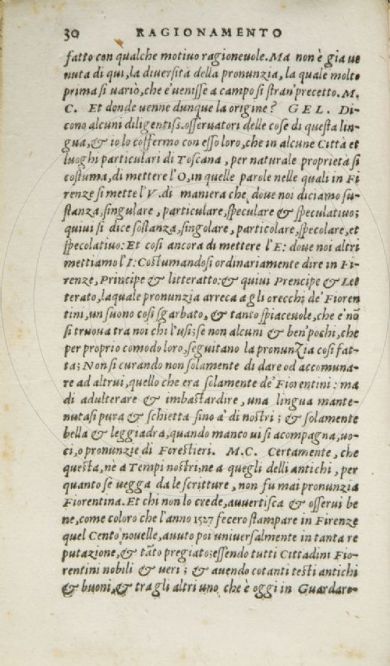 30 RAGIONAMENTO
fatto con qualche motivo ragioneuole. Ma non è gia ue
nuta di qui, la diuersità della pronunzia, la quale molto
prima si uariò, che e' uenisse a campo sì stran' precetto. M.
C. Et donde uenne dunque la origine? GEL. Di-
cono alcuni diligentiss. osseruatori delle cose di questa lin
gua, & io lo cōfermo con esso loro, che in alcune Città et
luoghi particulari di Toscana, per naturale proprietà si
costuma, di mettere l'O, in quelle parole nelle quali in Fi
renze si mette l'V. di maniera che doue noi diciamo su-
stanza, singulare, particulare, speculare & speculatiuo;
quiui si dice sostanza, singolare, particolare, specolare, et
specolatiuo: Et così ancora di mettere l'E: doue noi altri
mettiamo l'I: Costumandosi ordinariamente dire in Fi-
renze, Principe & litteratto: & quiui Prencipe & Let
terato, laquale pronunzia arreca a gli orecchi de' Fioren
tini, un suono così sgarbato, & tanto spiaceuole, che e' nō
si truoua tra noi chi l'usi; se non alcuni & ben' pochi, che
per proprio comodo loro, seguitano la pronunzia così fat-
ta; Non si curando non solamente di dare od accomuna-
re ad altrui, quello che era solamente de' Fiorentini: ma
di adulterare & imbastardire, una lingua mante-
nutasi pura & schietta sino a' dì nostri; & solamente
bella & leggiadra, quando manco ui si acompagna, uo-
ci, o pronunzie di Forestieri. M.C. Certamente, che
questa, nè a Tempi nostri; ne a quegli delli antichi, per
quanto se uegga da le scritture, non fu mai pronunzia
Fiorentina. Et chi non lo crede, auuertisca & osserui be
ne, come coloro che l'anno 1527 fecero stampare in Firenze
quel Cento nouelle, auuto poi uniuersalmente in tanta re
putazione, & tāto pregiato: essendo tutti Cittadini Fio-
rentini nobili & ueri; & auendo cotanti testi antichi
& buoni, & tra gli altri uno che è oggi in Guardaro-